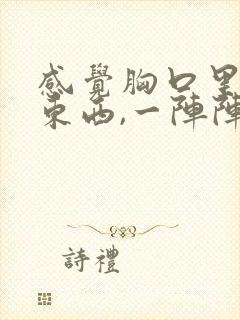 感覺胸口里
東西,一陣陣
詩禮